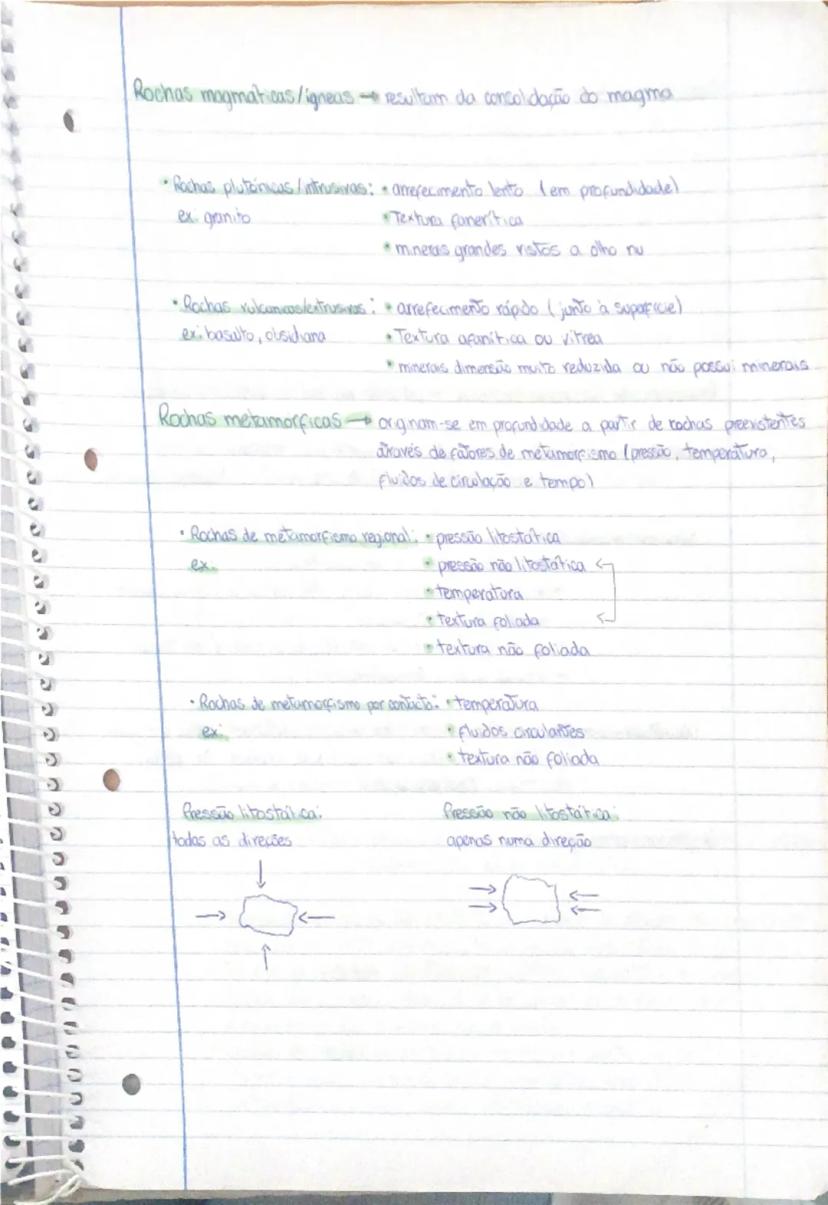 Rochas magmáticas/ígneas → resultam da consolidação do magma
• Rochas plutónicas/intrusivas: • arrefecimento lento (em profundidade)
ex: granito • Textura fanerítica
• minerais grandes vistos a olho nu
• Rochas vulcanicas/extrusivas: • arrefecimento rápido (junto à superfície)
ex: basalto, obsidiana • Textura afanítica ou vítrea
• minerais dimensão muito reduzida ou não possui minerais
Rochas metamorficas → originam-se em profundidade a partir de rochas preexistentes
através de fatores de metamorfismo (pressão, temperatura,
fluidos de circulação e tempo)
• Rochas de metamorfismo regional: • pressão litostática
ex: • pressão não litostática ←
• temperatura
• textura foliada ←
• textura não foliada
• Rochas de metamorfismo por contacto: • temperatura
ex: • fluidos circulantes
• textura não foliada
Pressão litostática: Pressão não litostática:
todas as direções apenas numa direção